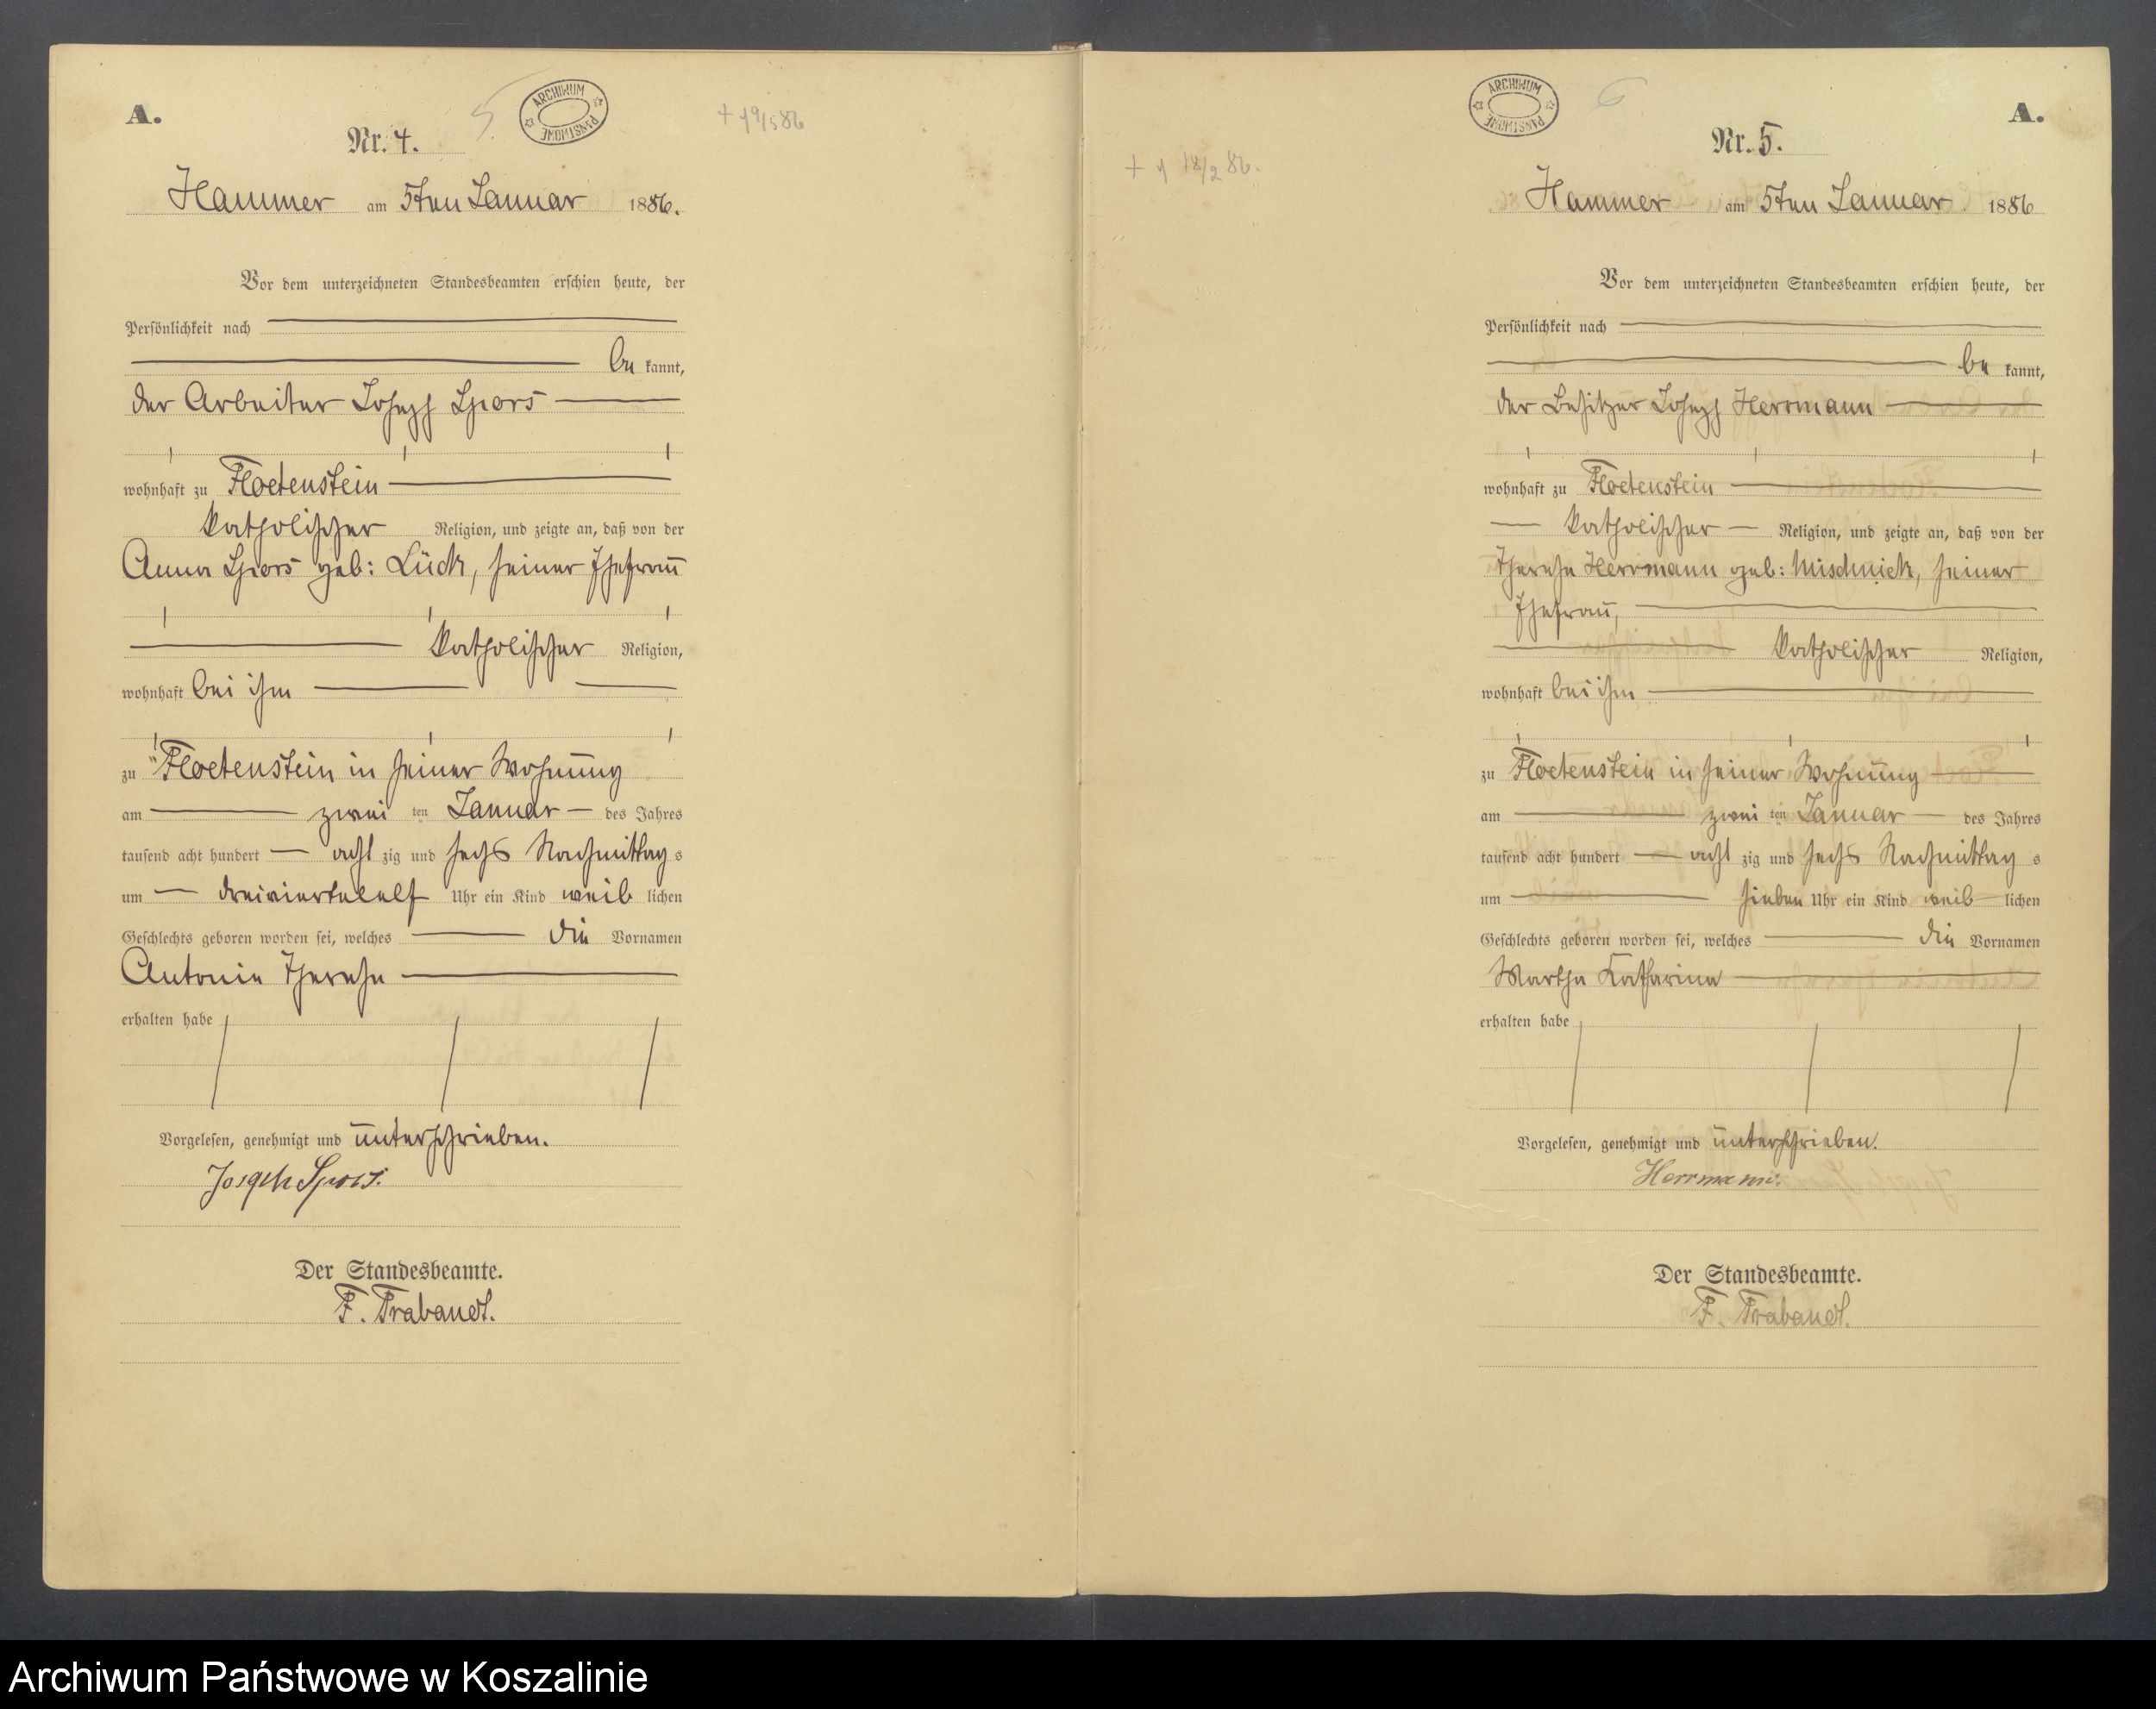 A.
5
ARCHIWUM PAŃSTWOWE
Nr. 4.
Hammer am 5ten Januar 1886.
Vor dem unterzeichneten Standesbeamten erschien heute, der
Persönlichkeit nach
be kannt,
der Arbeiter Joseph Spors
wohnhaft zu Floetenstein
katholischer Religion, und zeigte an, daß von der
Anna Spors geb: Lück, seiner Ehefrau
katholischer Religion,
wohnhaft bei ihm
zu Floetenstein in seiner Wohnung
am zwei ten Januar des Jahres
tausend acht hundert acht zig und sechs Nachmittag s
um dreiviertelelf Uhr ein Kind weib lichen
Geschlechts geboren worden sei, welches die Vornamen
Antonie Therese
erhalten habe
Vorgelesen, genehmigt und unterschrieben.
Joseph Spors.
Der Standesbeamte.
F. Trabandt.
+ 1 18/2 86.
ARCHIWUM PAŃSTWOWE
6
A.
Nr. 5.
Hammer am 5ten Januar 1886
Vor dem unterzeichneten Standesbeamten erschien heute, der
Persönlichkeit nach
be kannt,
der Besitzer Joseph Herrmann
wohnhaft zu Floetenstein
katholischer Religion, und zeigte an, daß von der
Therese Herrmann geb: Mischnick, seiner
Ehefrau,
katholischer Religion,
wohnhaft bei ihm
zu Floetenstein in seiner Wohnung
am zwei ten Januar des Jahres
tausend acht hundert acht zig und sechs Nachmittag s
um sieben Uhr ein Kind weib lichen
Geschlechts geboren worden sei, welches die Vornamen
Martha Katharina
erhalten habe
Vorgelesen, genehmigt und unterschrieben.
Herrmann.
Der Standesbeamte.
F. Trabandt.
Archiwum Państwowe w Koszalinie